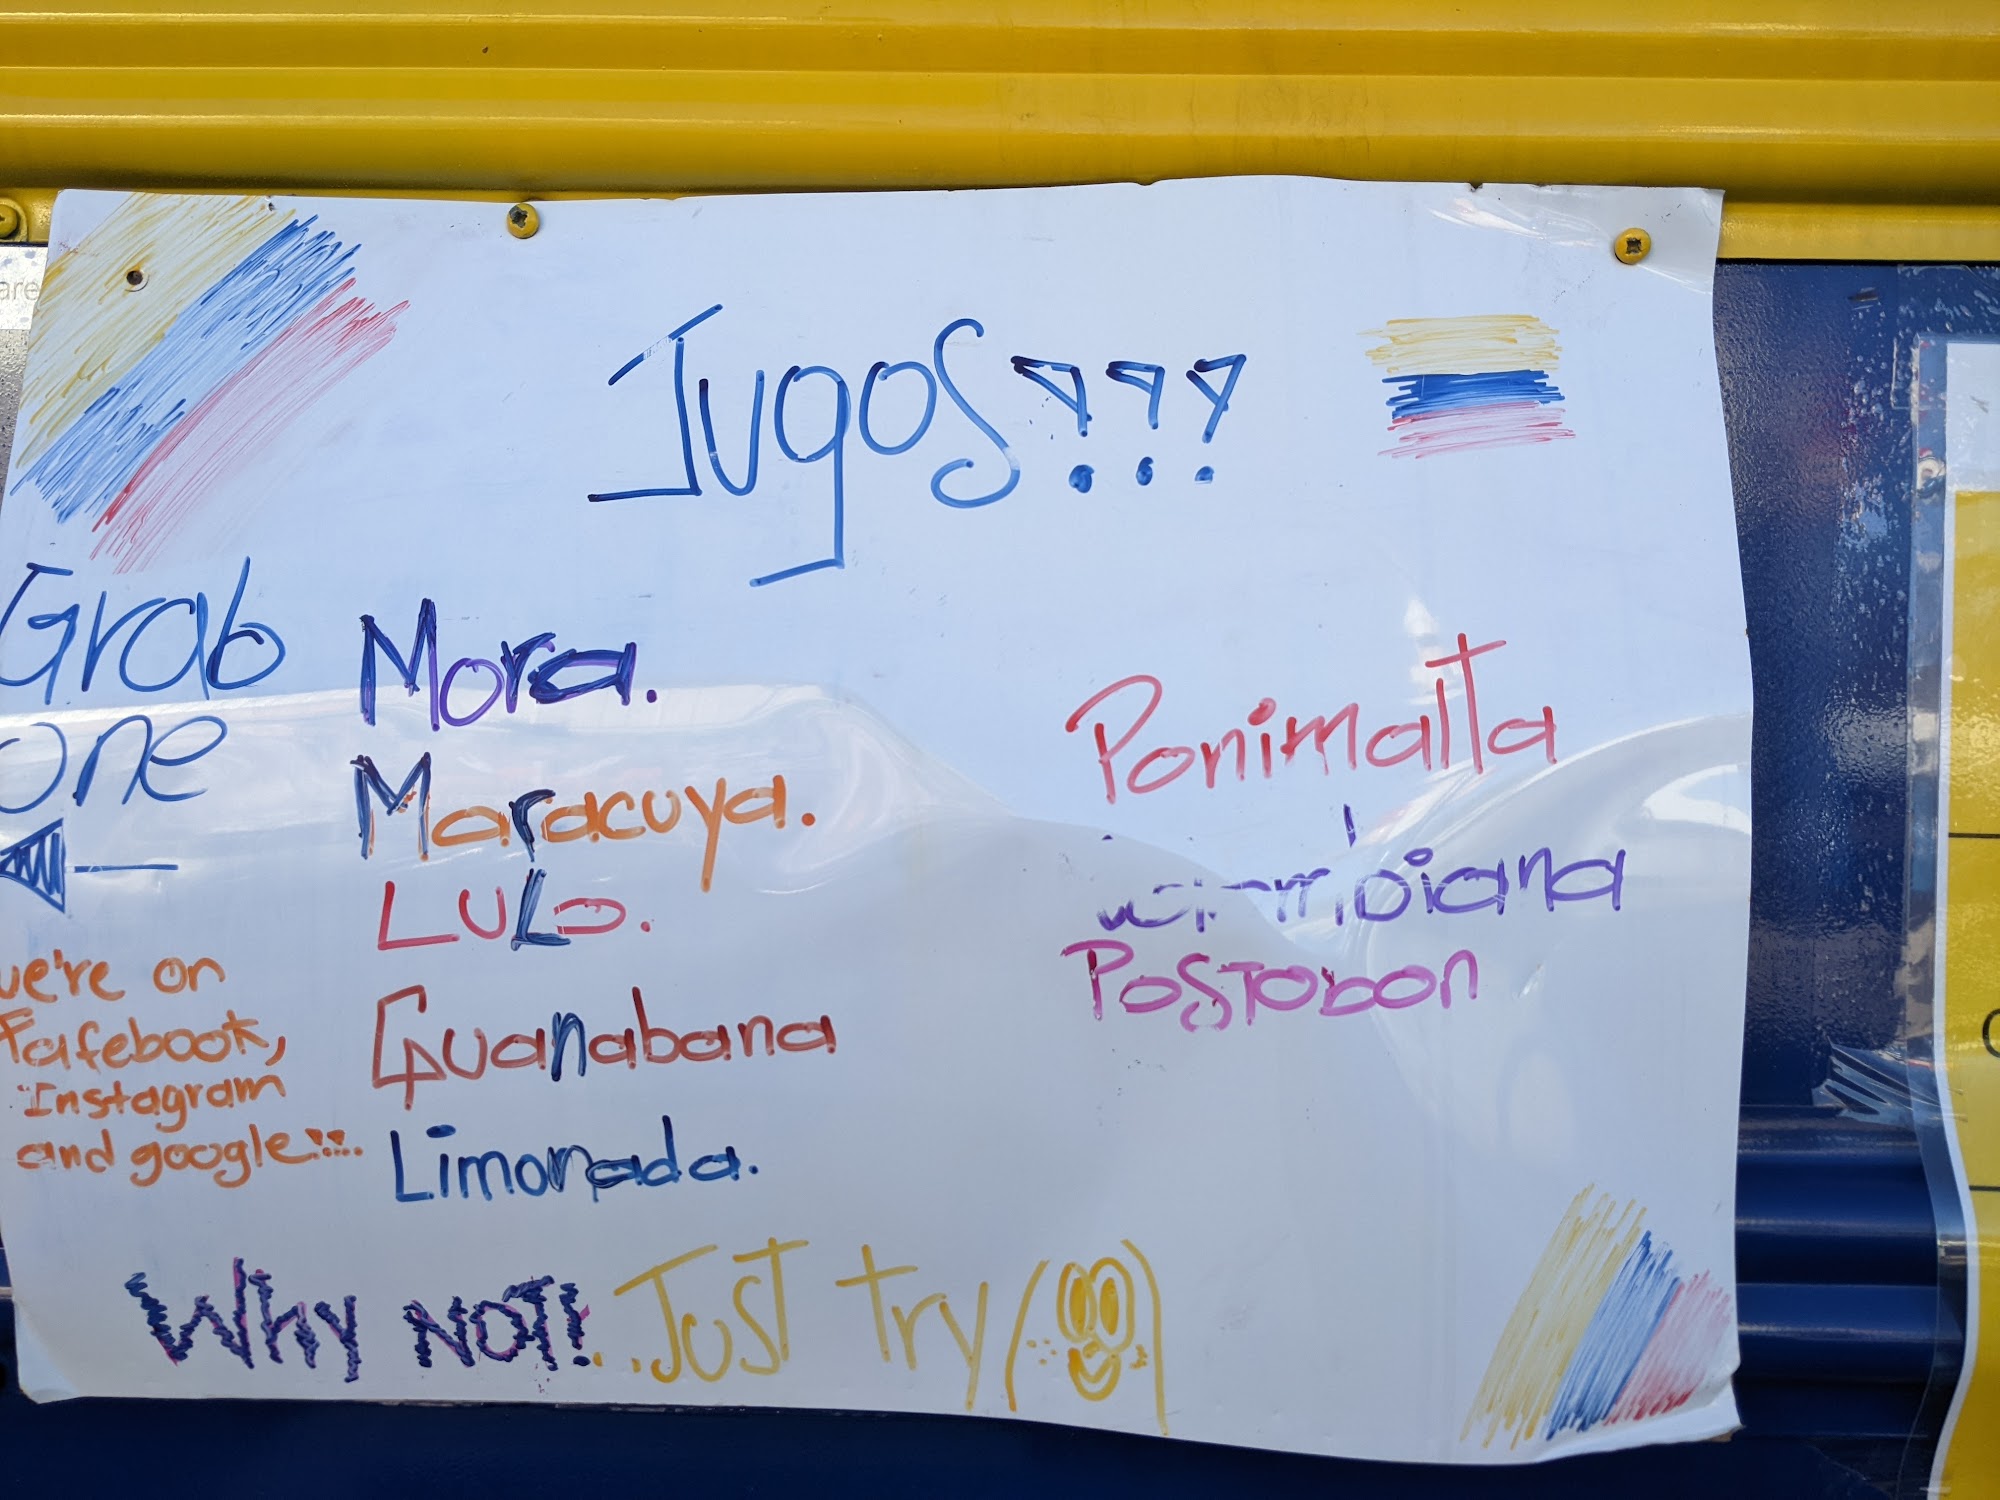 Jugos!!!
Grab
one
we're on
Fafebook,
Instagram
and google!!!...
Mora.
Maracuya.
LULO.
Guanabana
Limonada.
Ponimalta
Postobon
Why NOT!... Just try